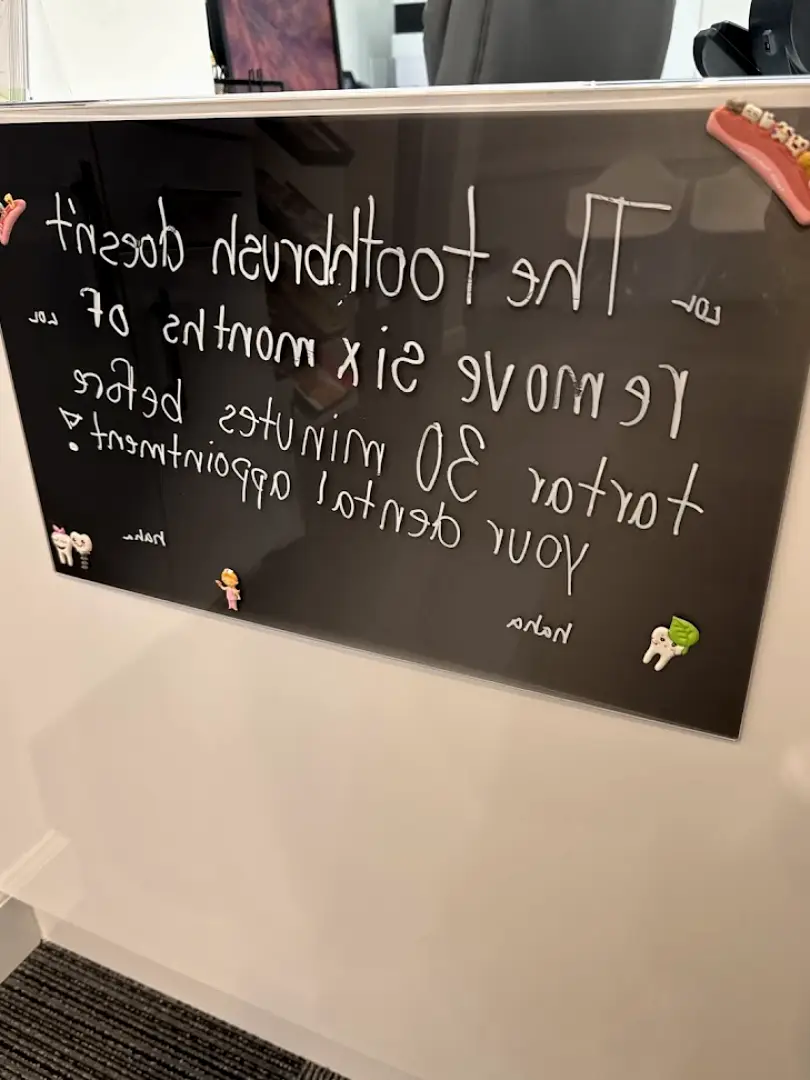 The toothbrush doesn't
LOL
remove six months of
LOL
tartar 30 minutes before
your dental appointment!
haha
haha